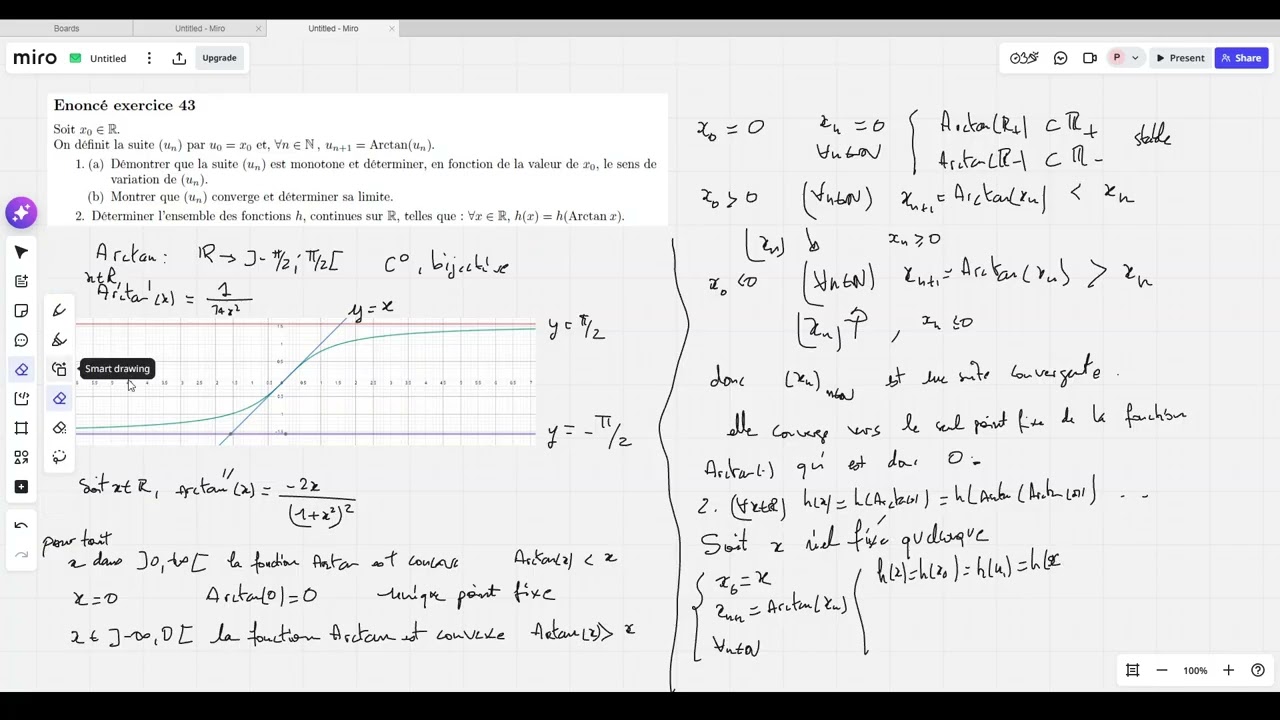 Boards
Untitled - Miro
Untitled - Miro
miro
Untitled
Upgrade
P
Present
Share
Enoncé exercice 43
Soit x₀ ∈ ℝ.
On définit la suite (uₙ) par u₀ = x₀ et, ∀n ∈ ℕ, uₙ₊₁ = Arctan(uₙ).
1. (a) Démontrer que la suite (uₙ) est monotone et déterminer, en fonction de la valeur de x₀, le sens de
variation de (uₙ).
(b) Montrer que (uₙ) converge et déterminer sa limite.
2. Déterminer l'ensemble des fonctions h, continues sur ℝ, telles que : ∀x ∈ ℝ, h(x) = h(Arctan x).
Arctan : ℝ → ]-π/2; π/2[ C⁰, bijective
x∈ℝ,
Arctan'(x) = 1/(1+x²)
y = x
y = π/2
Smart drawing
y = -π/2
Soit x∈ℝ, Arctan''(x) = -2x/(1+x²)²
pour tout
x dans ]0,+∞[ la fonction Arctan est concave Arctan(x) < x
x = 0 Arctan(0) = 0 unique point fixe
x ∈ ]-∞,0[ la fonction Arctan est convexe Arctan(x) > x
x₀ = 0 xₙ = 0 ∀n∈ℕ { Arctan(ℝ+) ⊂ ℝ+
Arctan(ℝ-) ⊂ ℝ- stable
x₀ > 0 (∀n∈ℕ) xₙ₊₁ = Arctan(xₙ) < xₙ
(xₙ) ↘ xₙ ≥ 0
x₀ < 0 (∀n∈ℕ) xₙ₊₁ = Arctan(xₙ) > xₙ
(xₙ) ↑, xₙ ≤ 0
donc (xₙ)n∈ℕ est une suite convergente.
elle converge vers le seul point fixe de la fonction
Arctan(.) qui est donc 0.
2. (∀x∈ℝ) h(x) = h(Arctan(x)) = h(Arctan(Arctan(x))) ...
Soit x réel fixé quelconque
{ x₀ = x
xₙ₊₁ = Arctan(xₙ)
∀n∈ℕ
h(x) = h(x₀) = h(u₁) = h(x
100%